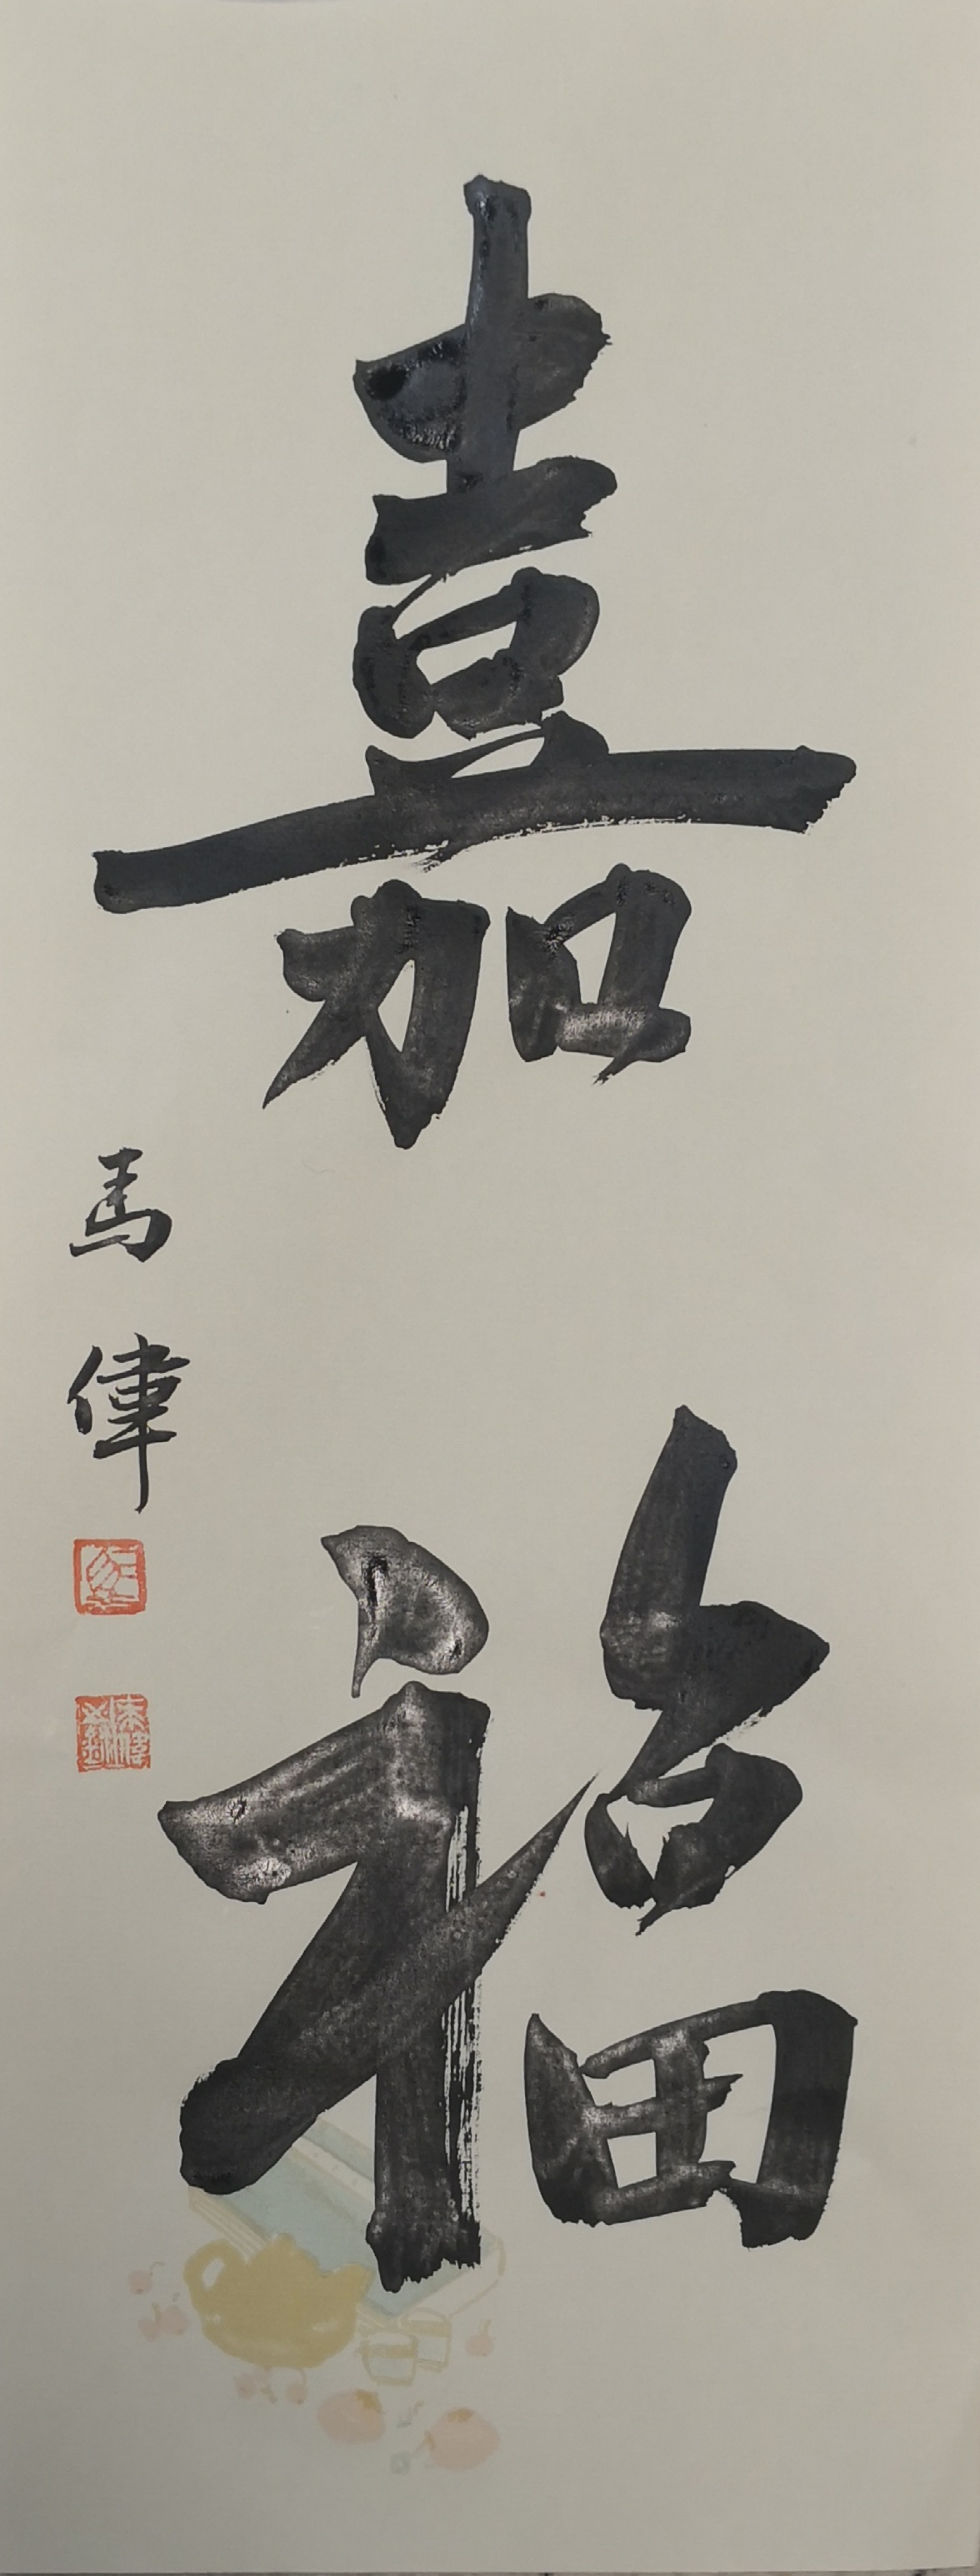 嘉福
馬偉